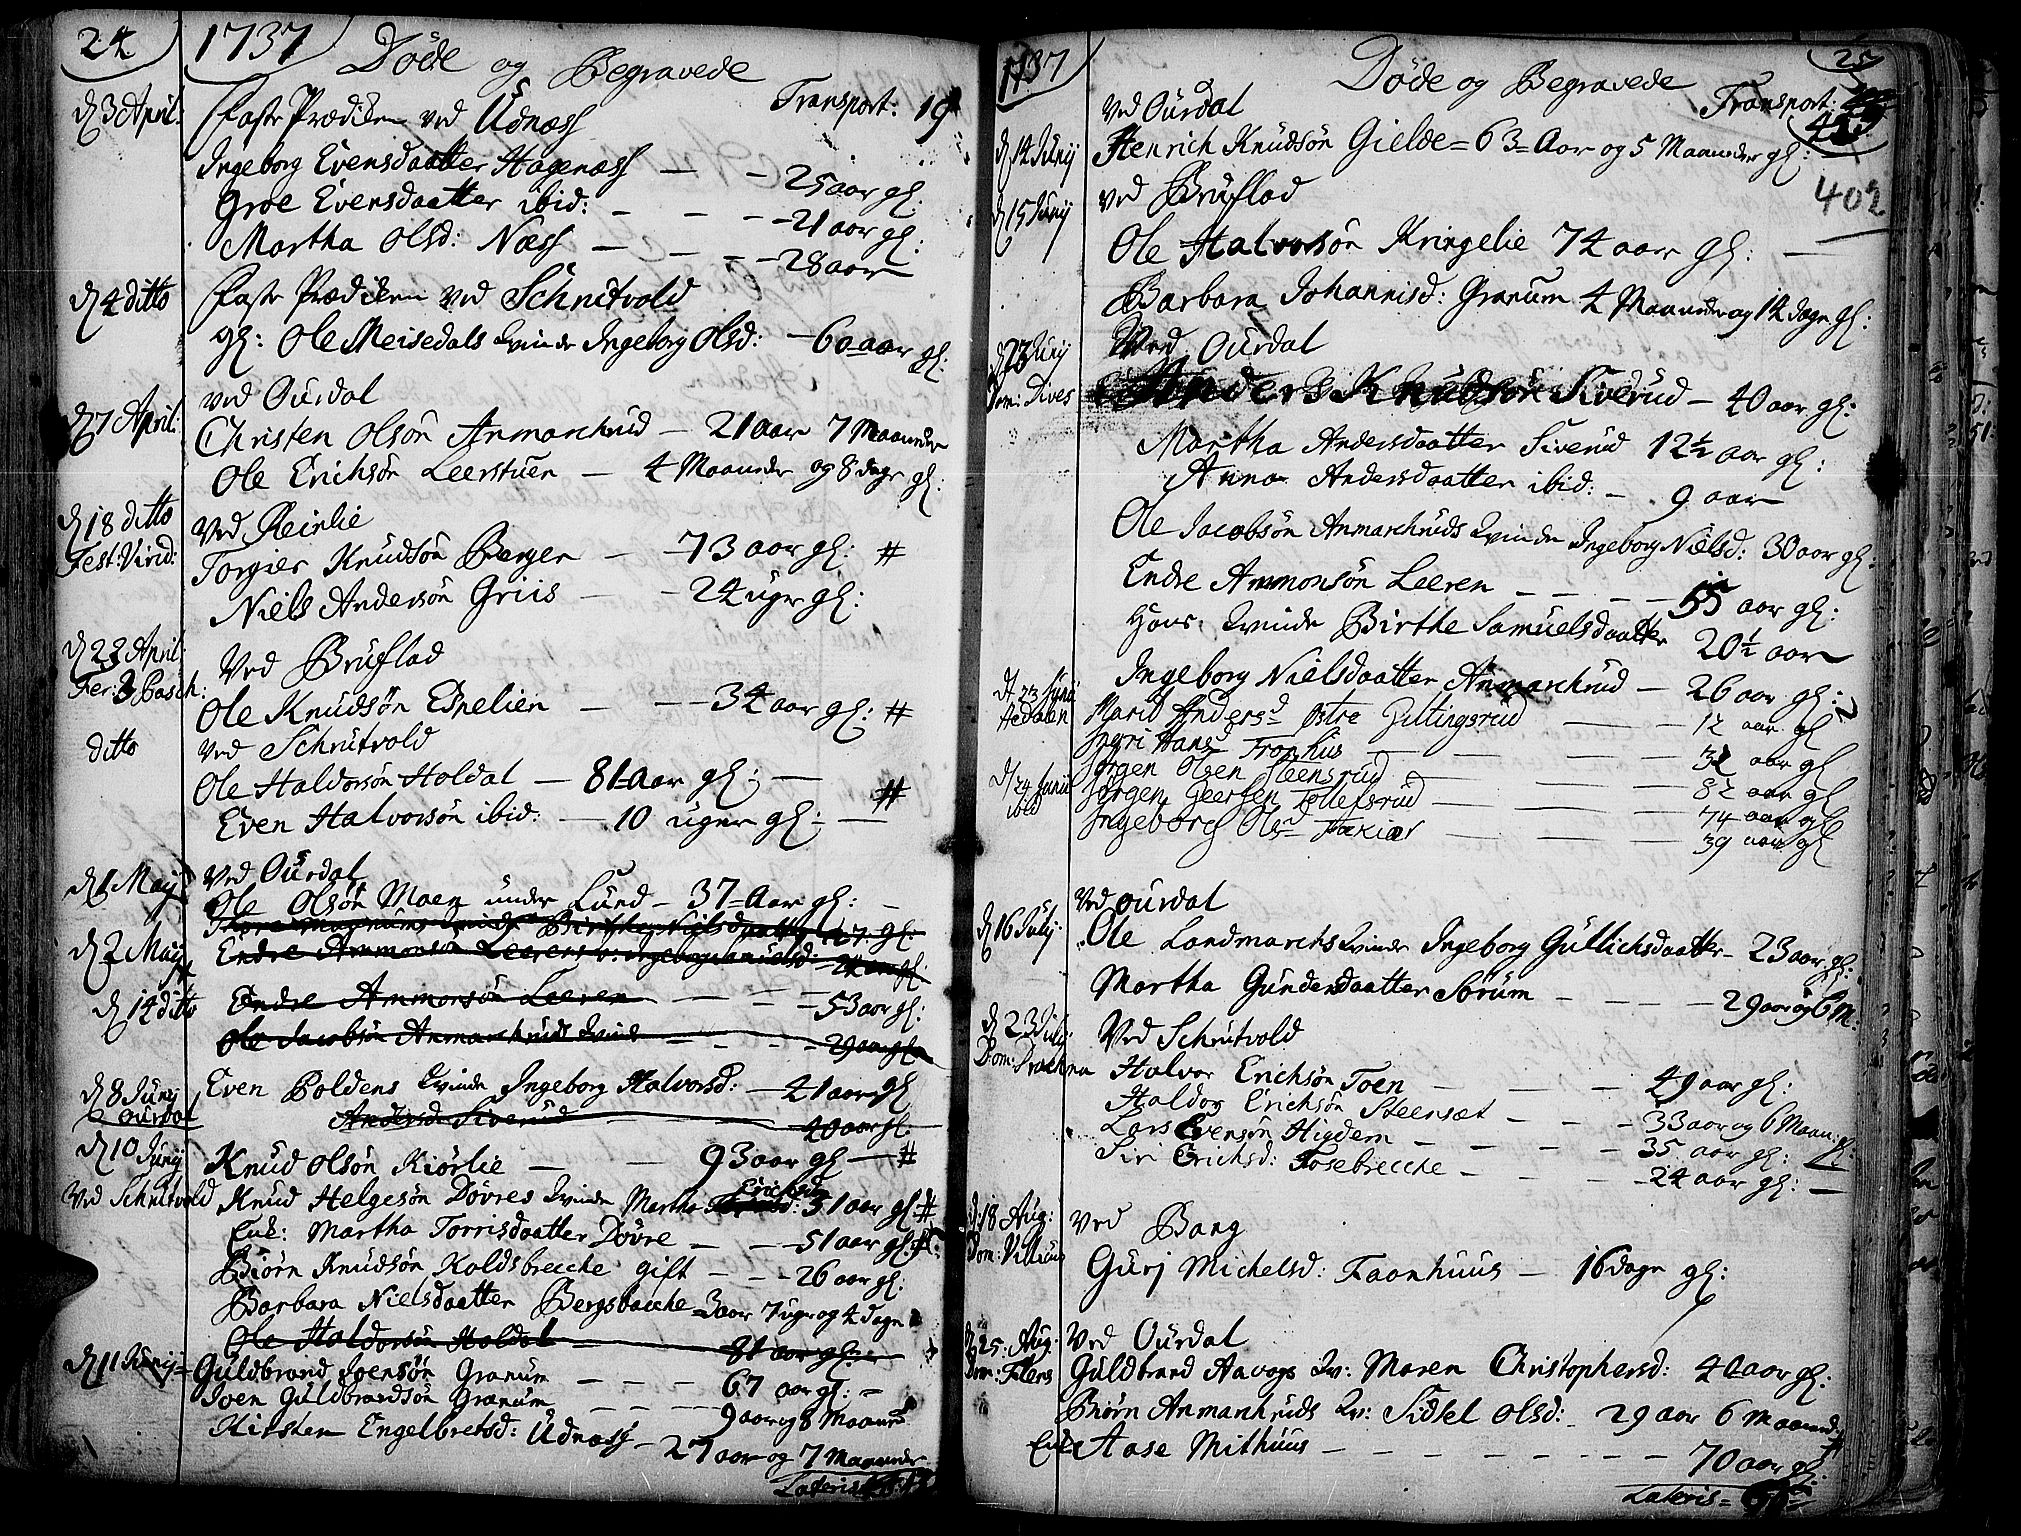 24
1737
Döde og Begravede
Transport: 19
d 3 April:
Faste Prædiken ved Udnæss
Ingeborg Evensdaatter Hagenæss — — 25 aar gl:
Groe Evensdaatter ibid: — — — 21 aar gl:
Martha Olsd: Næss — — — 28 aar
d 4 ditto
Faste Prædiken ved Schrutvold
gl: Ole Meisedals Kvinde Ingeborg Olsd: — 60 aar gl:
ved Ourdal
d 7 April:
Christen Olsön Anmarchrud — 21 aar 7 Maaneder
Ole Erichsön Leerstuen — 4 Maaneder og 8 dage gl:
d 18 ditto
Fest: Virid:
Ved Reinlie
Torgier Knudsön Bergen — 73 aar gl: #
Niels Andersön Griis — — 24 uger gl:
d 23 April:
Fer: 3 Pasch:
Ved Bruflad
Ole Knudsön Espelien — — 34 aar gl: #
ditto
ved Schrutvold
Ole Haldorsön Holdal — 81 aar gl: —
Even Halvorsön ibid: — 10 uger gl: — #
d 1 May
Ved Ourdal
Ole Olsön Moen under Lund — 37 = Aar gl: —
d 2 May
Endre Ammonsön Leerens
d 14 ditto
Endre Ammonsön Leeren — — — 53 aar gl:
Ole Jacobsön Anmarchruds Kvinde — — — 29 aar gl:
d 8 Junij
Ourdal
Even Boldens Kvinde Ingeborg Halvorsd: — 41 aar gl
Anders Siverud — — 40 aar gl:
d 10 Junij
Knud Olsön Kiörlie — — 93 aar gl — #
Ved Schrutvold
Knud Helgesön Dövres Kvinde Martha Erichsd: 51 aar gl: #
Enk: Martha Torrisdaatter Dövre — — 51 aar gl: #
Biörn Knudsön Koldsbrecche gift — — 26 aar gl:
Barbara Nielsdaatter Bergsbacche = 3 aar 7 uger og 4 dage
Ole Haldorsön Holdal — 81 aar gl:
d 11 Junij =
Guldbrand Joensön Granum — — — 67 aar gl: =
Joen Guldbrandsön Granum — — — 9 aar og 8 Maaned
Kirsten Engelbretsd: Udnæss — 27 aar og 7 Maaneder
Lateris
1737
Döde og Begravede
25
Transport:
Ved Ourdal
d 14 Junij
Henrich Knudsön Gielde = 63 = Aar og 5 Maaneder gl:
402
d 15 Junij
ved Bruflad
Ole Halvorsön Kringelie 74 aar gl: —
Barbara Johannisd: Granum 4 Maaneder og 14 dage gl:
Ved Ourdal
Dom: Dives
Anders Knudsön Siverud — 40 aar gl:
Martha Andersdaatter Siverud 12½ aar gl:
Anna Andersdaatter ibid: — 9 aar
Ole Jacobsön Anmarchruds Kvinde Ingeborg Nielsd: 30 aar gl:
Endre Ammonsön Leeren — — — — 55 aar gl:
Hans Kvinde Birthe Samuelsdaatter 20½ aar
Ingeborg Nielsdaatter Anmarchrud — 26 aar gl:
d. 23 Junii
Hedalen
Marit Andersd Östre Gillingsrud — 12 aar gl
Ingri Hansd Fronhus — 32 aar gl
Jörgen Olsen Steensrud — 82 aar gl
d. 24 Junii
ibid
Jörgen Geersen Tollefsrud — 74 aar gl
Ingeborg Olsd — 39 aar gl
Ved Ourdal
d 16 Julij
Ole Landmarchs Kvinde Ingeborg Gullichsdaatter — 23 aar gl:
Martha Gundersdaatter Sörum — — — — 29 aar og 6 M:
d 23 Julij:
Ved Schrutvold
Halvor Erichsön Toen — — — 49 aar gl:
Haldor Erichsön Steensæt — — — 33 aar og 6 Maan: gl:
Lars Evensön Higdem — — — 35 aar gl:
Siri Erichsd: Fosebrecche — — — 24 aar gl: —
d. 18 Aug:
ved Bang
Gurj Michelsd: Faanhuus — 16 dage gl:
d 25: Aug:
Ved Ourdal
Guldbrand Aavogs Kv: Maren Christophersd: 40 aar gl:
Biörn Anmarchruds Kv: Sidsel Olsd: 29 aar 6 Maaned:
Enk Aase Mithuus — — — — — 70 aar gl:
Lateris =